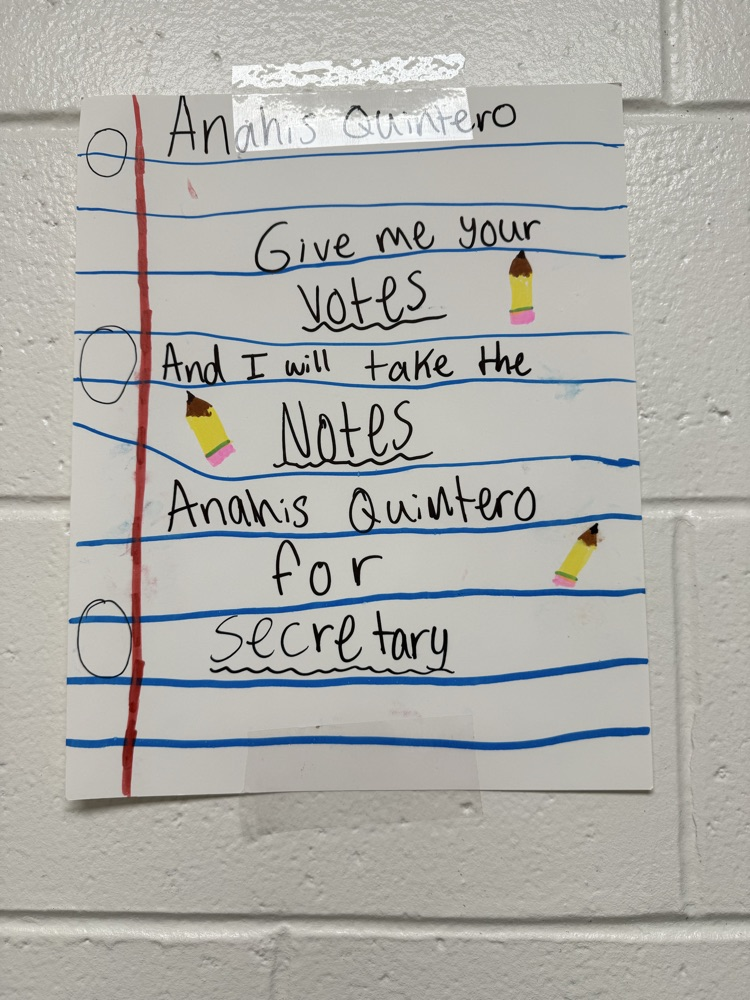 Anahis Quintero
Give me your
Votes
And I will take the
Notes
Anahis Quintero
for
Secretary